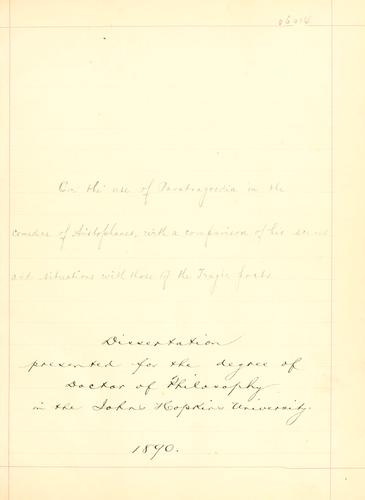 06014
On the use of Paratragoedia in the
comedies of Aristophanes, with a comparison of his scenes
and situations with those of the Tragic Poets
Dissertation
presented for the degree of
Doctor of Philosophy
in the Johns Hopkins University.
1890.